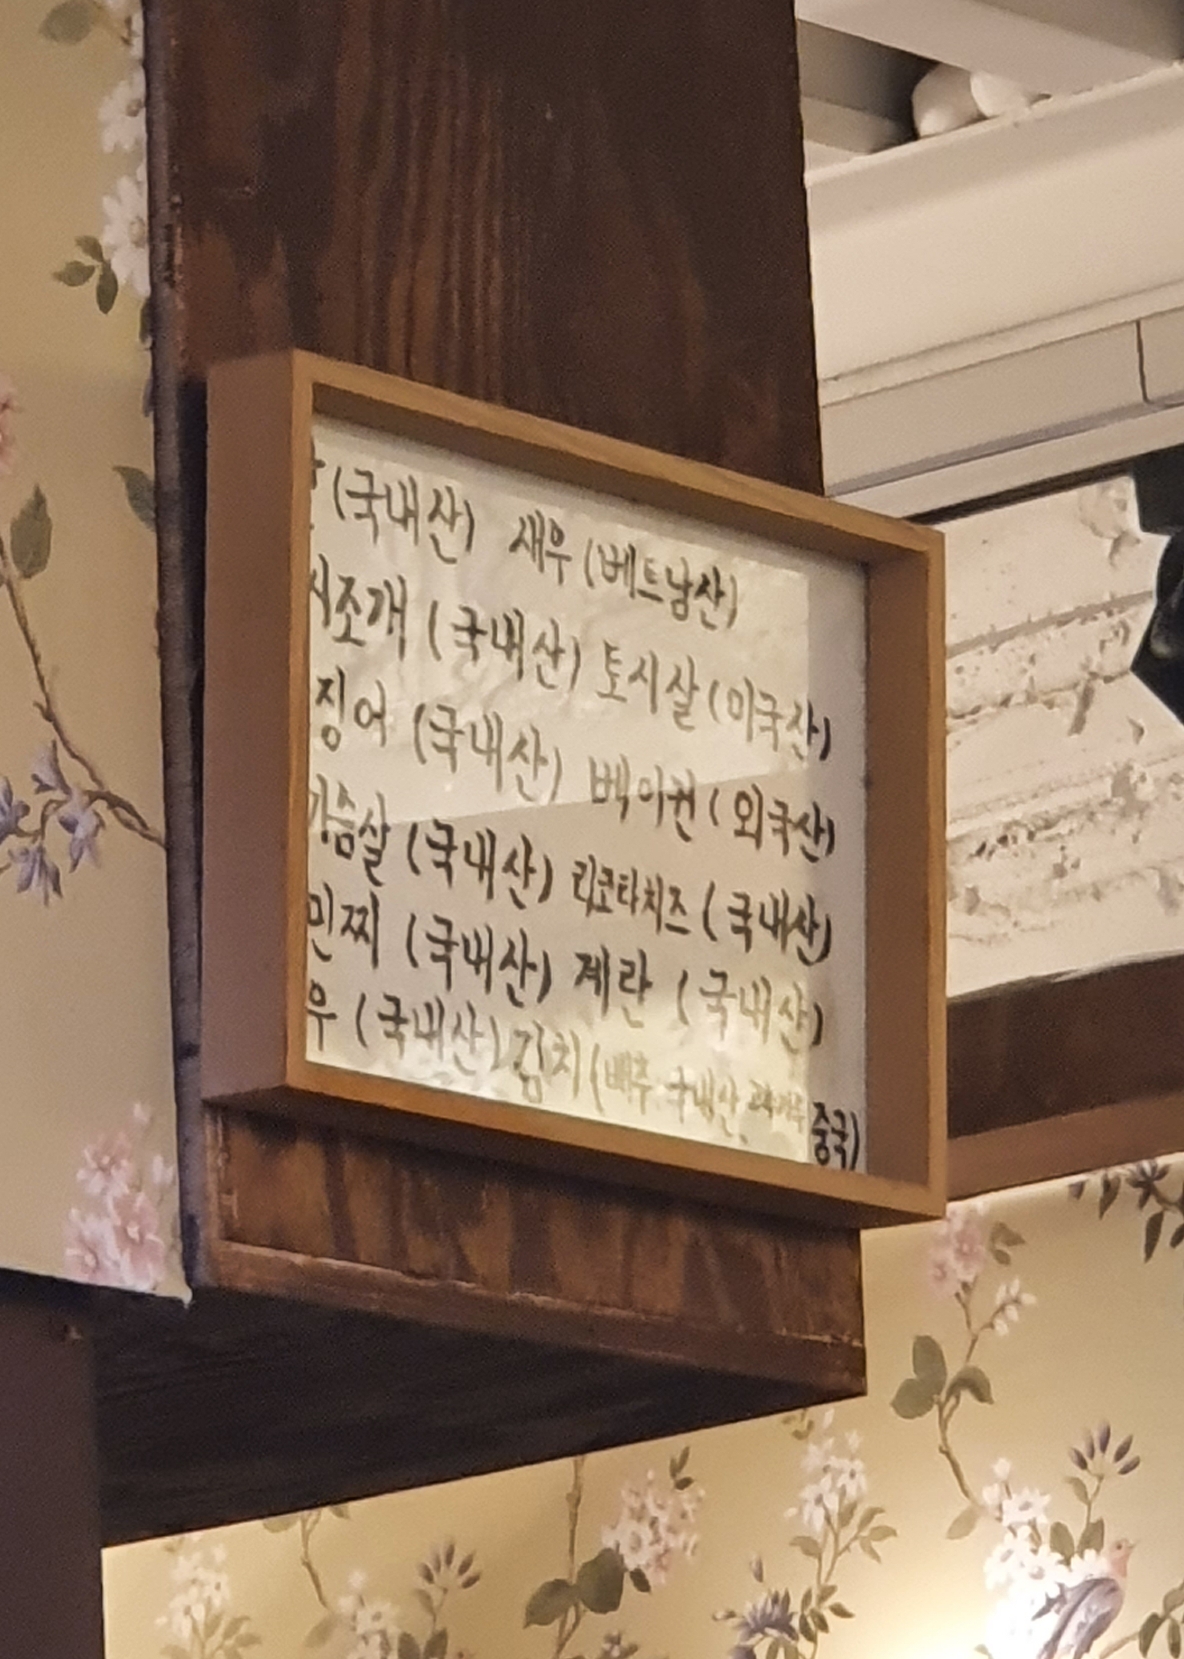 (국내산) 새우 (베트남산)
시조개 (국내산) 토시살 (미국산)
징어 (국내산) 베이컨 (외국산)
가슴살 (국내산) 리코타치즈 (국내산)
민찌 (국내산) 계란 (국내산)
우 (국내산) 김치 (배추 국내산, 고춧가루 중국)